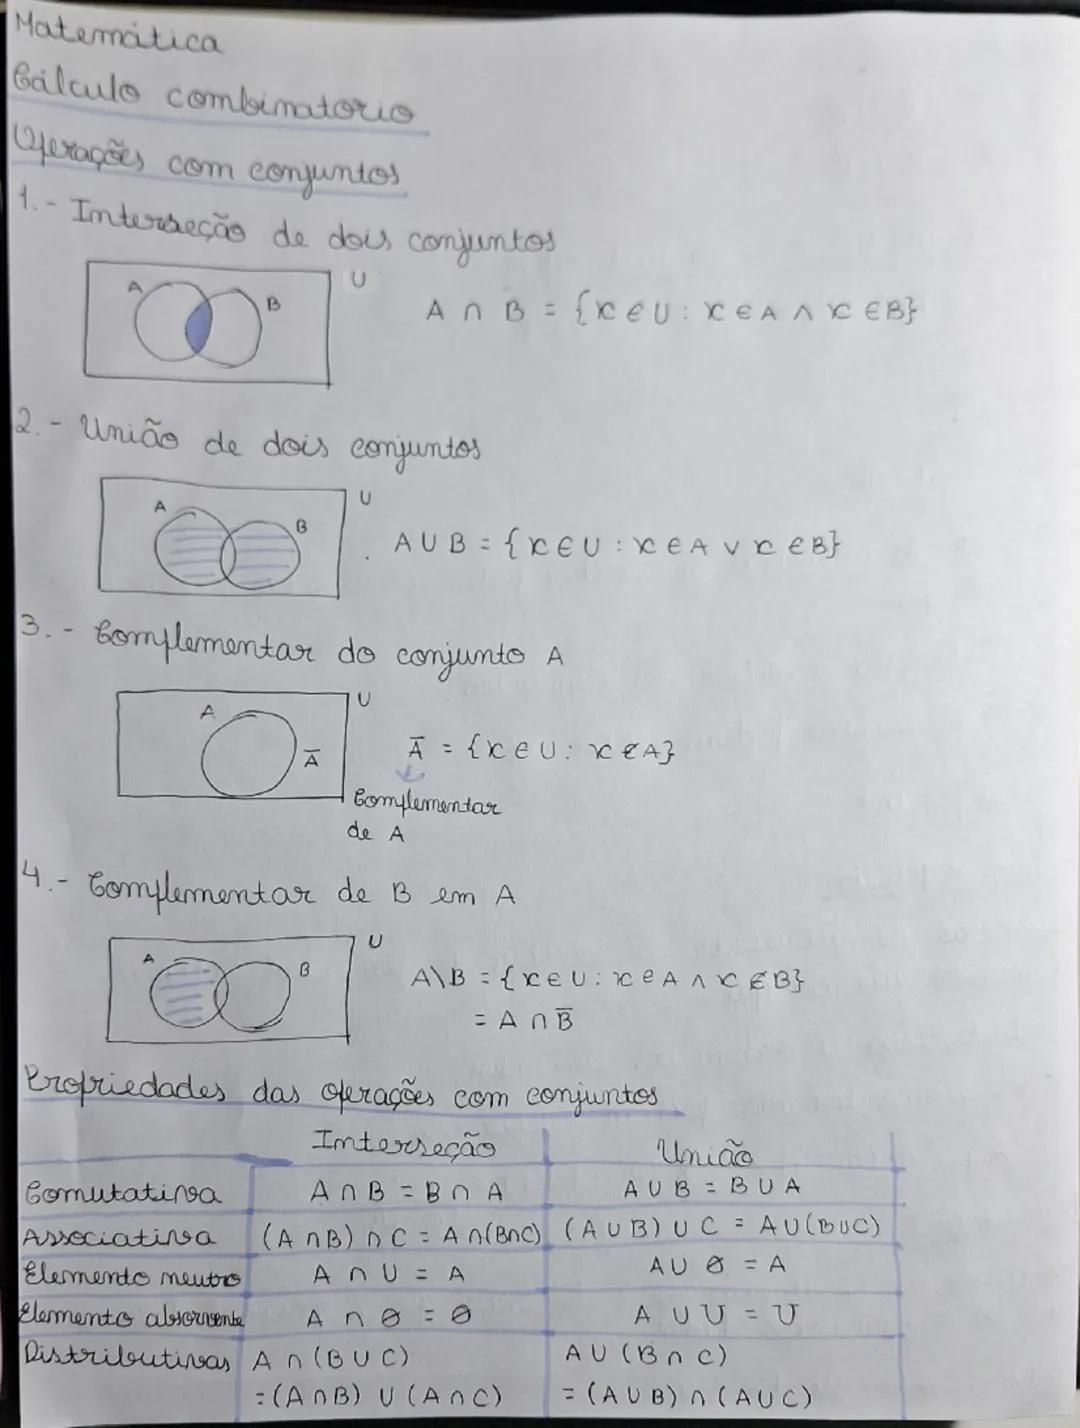 Matemática
Cálculo combinatorio
Operações com conjuntos
1.- Interseção de dois conjuntos
A B U
A ∩ B = {x ∈ U : x ∈ A ∧ x ∈ B}
2.- União de dois conjuntos
A B U
A ∪ B = {x ∈ U : x ∈ A ∨ x ∈ B}
3.- Complementar do conjunto A
A Ā U
Ā = {x ∈ U : x ∉ A}
Complementar
de A
4.- Complementar de B em A
A B U
A\B = {x ∈ U : x ∈ A ∧ x ∉ B}
= A ∩ B̅
Propriedades das operações com conjuntos
Interseção União
Comutativa A ∩ B = B ∩ A A ∪ B = B ∪ A
Associativa (A ∩ B) ∩ C = A ∩ (B ∩ C) (A ∪ B) ∪ C = A ∪ (B ∪ C)
Elemento neutro A ∩ U = A A ∪ ∅ = A
Elemento absorvente A ∩ ∅ = ∅ A ∪ U = U
Distributivas A ∩ (B ∪ C) A ∪ (B ∩ C)
= (A ∩ B) ∪ (A ∩ C) = (A ∪ B) ∩ (A ∪ C)